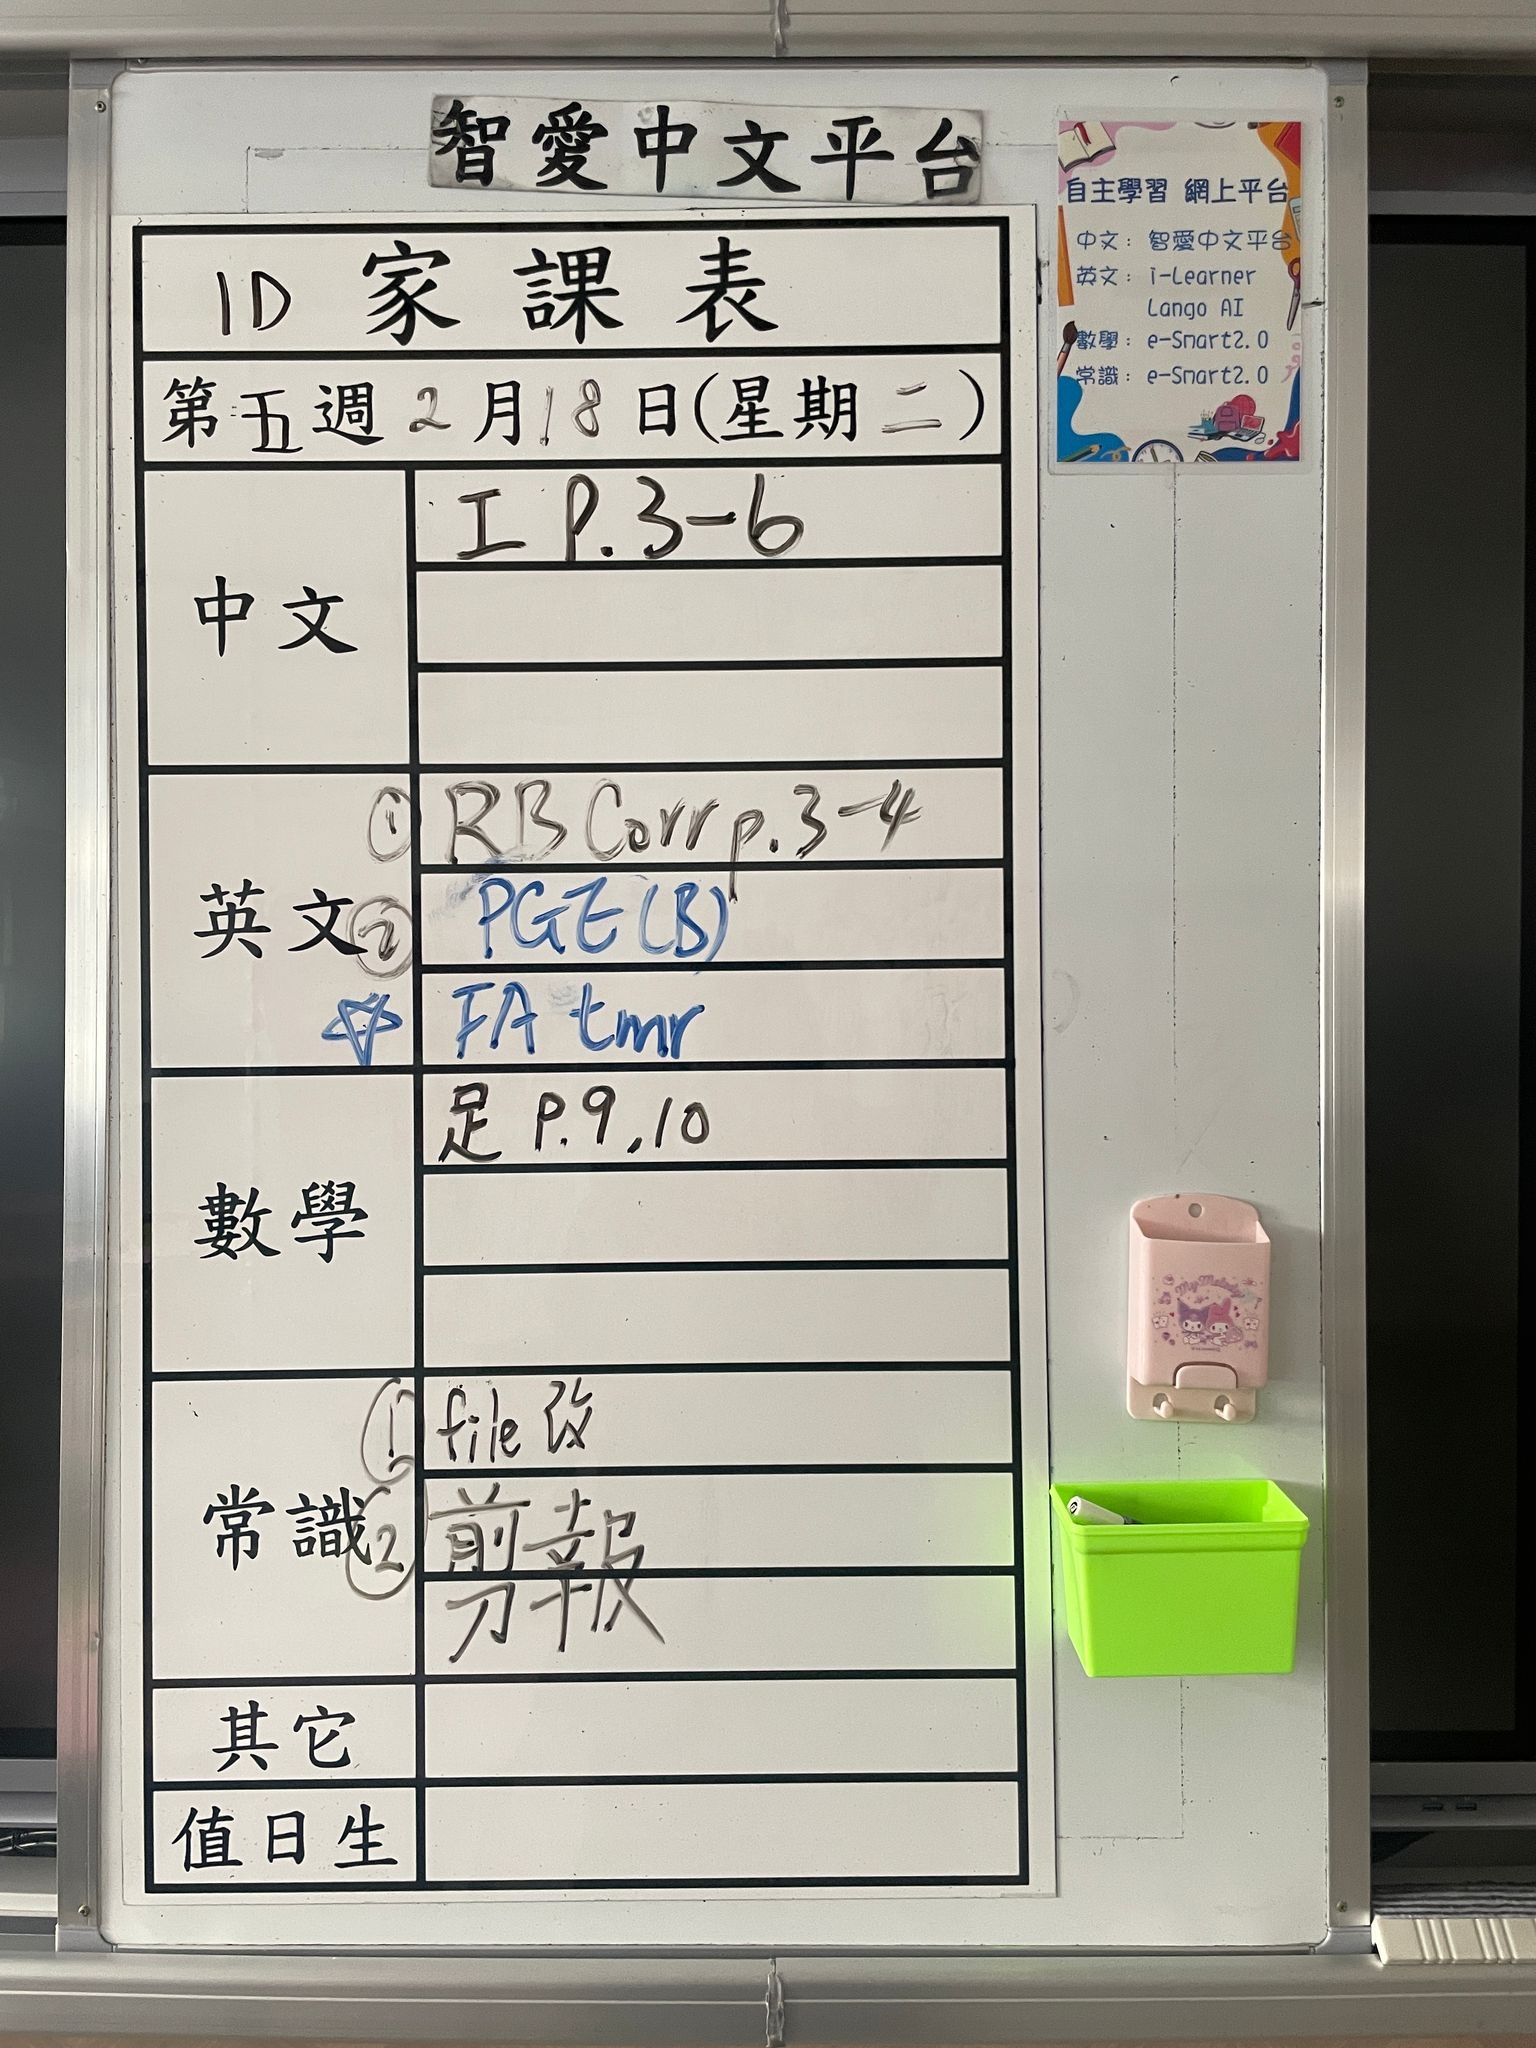 智愛中文平台
自主學習 網上平台
中文：智愛中文平台
英文：i-Learner
Lango AI
數學：e-Smart2.0
常識：e-Smart2.0
1D 家課表
第五週 2月18日(星期二)
中文
工 P.3-6
英文
① RB Corr p.3-4
② PGE(B)
☆ FA tmr
數學
足 P.9,10
常識
① file 改
② 剪報
其它
值日生
My Melody